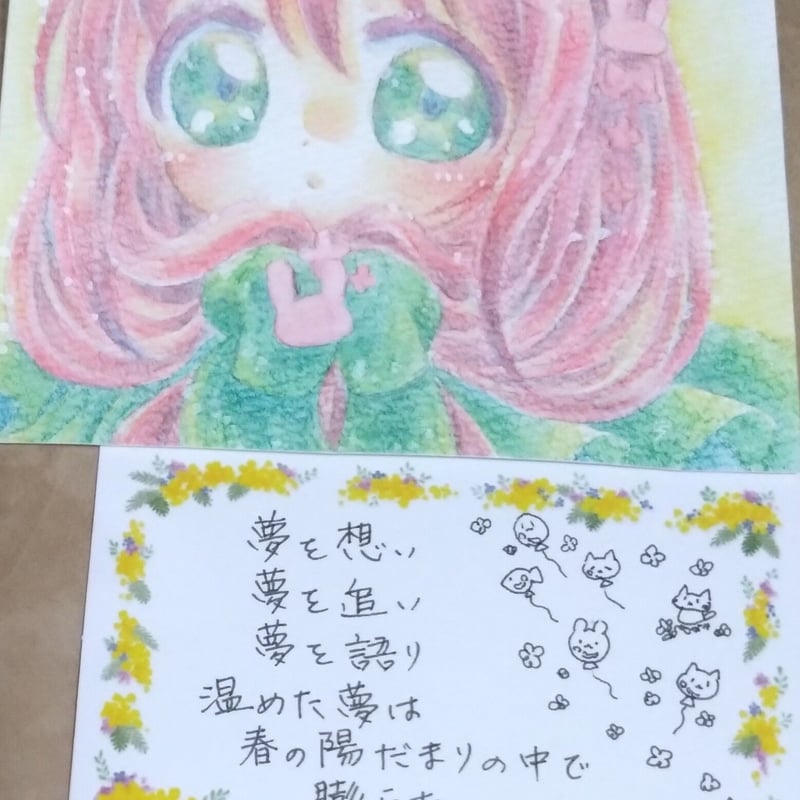 夢を想い
夢を追い
夢を語り
温めた夢は
春の陽だまりの中で